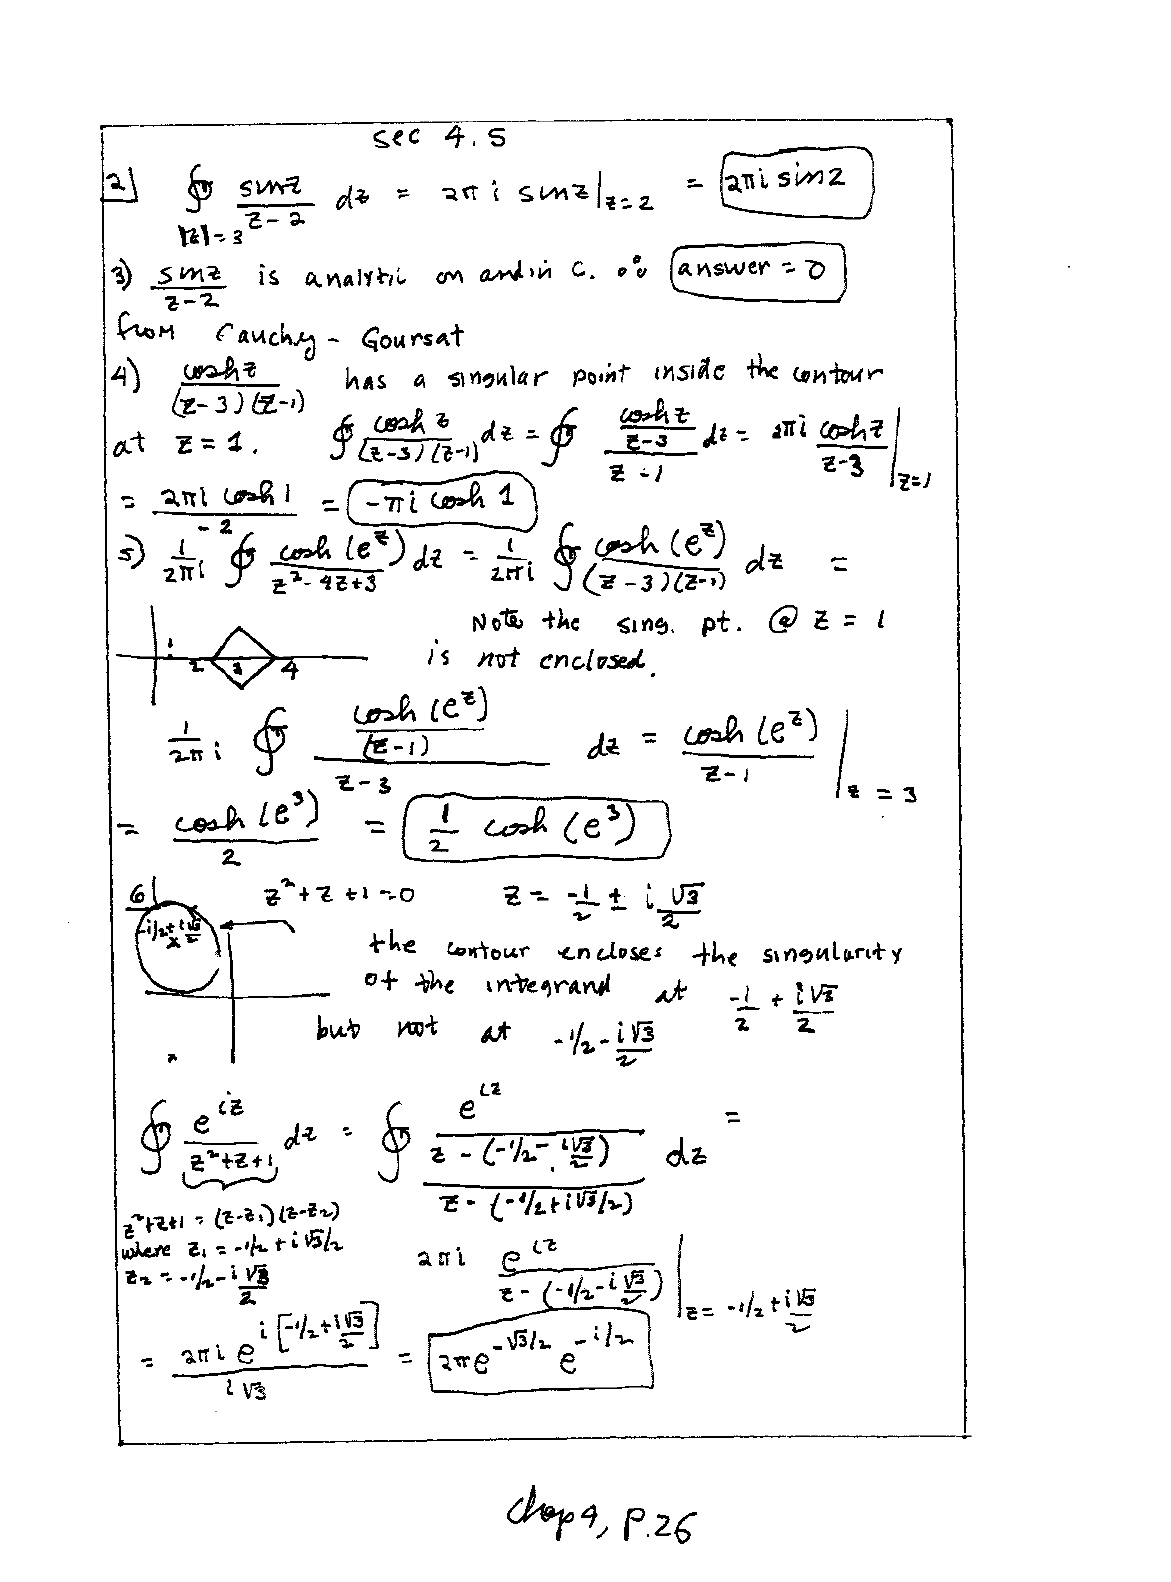 sec 4.5
2] ∮ sinz/(z-2) dz = 2πi sinz|z=2 = 2πi sin2
|z|=3
3) sinz/(z-2) is analytic on and in C. ∴ answer = 0
from Cauchy-Goursat
4) coshz/((z-3)(z-1)) has a singular point inside the contour
at z=1. ∮ cosh z/((z-3)(z-1)) dz = ∮ (cosh z/(z-3))/(z-1) dz = 2πi cosh z/(z-3)|z=1
= 2πi cosh 1/-2 = -πi cosh 1
5) 1/2πi ∮ cosh(e^z)/(z²-4z+3) dz = 1/2πi ∮ cosh(e^z)/((z-3)(z-1)) dz =
Note the sing. pt. @ z = 1
1 2 3 4 is not enclosed.
1/2πi ∮ (cosh(e^z)/(z-1))/(z-3) dz = cosh(e^z)/(z-1)|z=3
= cosh(e³)/2 = 1/2 cosh(e³)
6] z²+z+1=0 z = -1/2 ± i√3/2
-1/2+i√3/2 x
the contour encloses the singularity
of the integrand at -1/2 + i√3/2
but not at -1/2 - i√3/2
x
∮ e^(iz)/(z²+z+1) dz = ∮ (e^(iz)/(z-(-1/2-i√3/2)))/(z-(-1/2+i√3/2)) dz =
z²+z+1 = (z-z₁)(z-z₂)
where z₁ = -1/2+i√3/2
z₂ = -1/2-i√3/2
2πi e^(iz)/(z-(-1/2-i√3/2))|z=-1/2+i√3/2
= 2πi e^(i[-1/2+i√3/2])/(i√3) = 2πe^(-√3/2) e^(-i/2)
chap 4, p.26